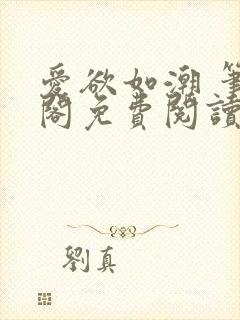 愛欲如潮 筆
閣免費閱讀
劉真